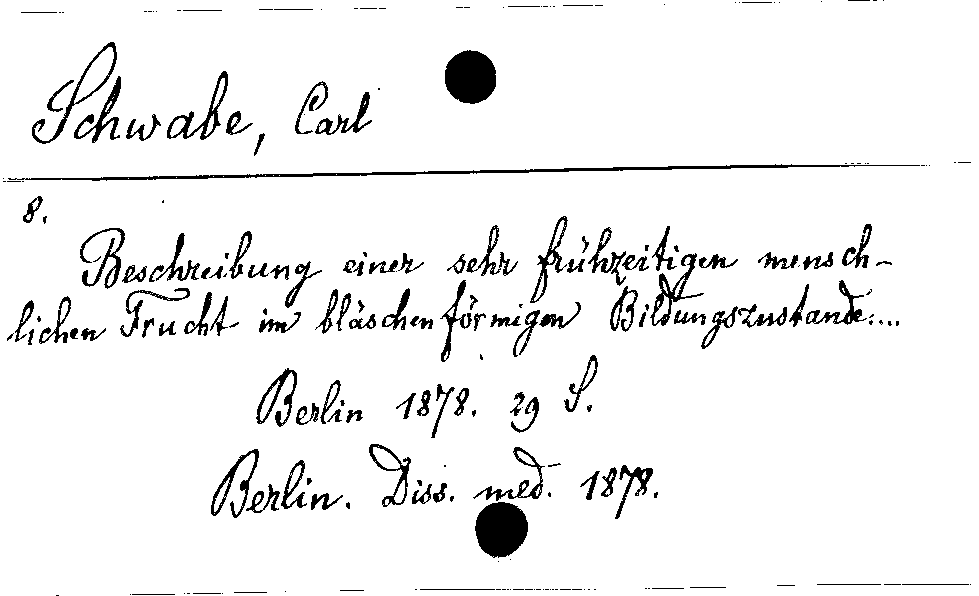 Schwabe, Carl
8.
Beschreibung einer sehr frühzeitigen mensch-
lichen Frucht im bläschenförmigen Bildungszustande....
Berlin 1878. 29 S.
Berlin. Diss. med. 1878.